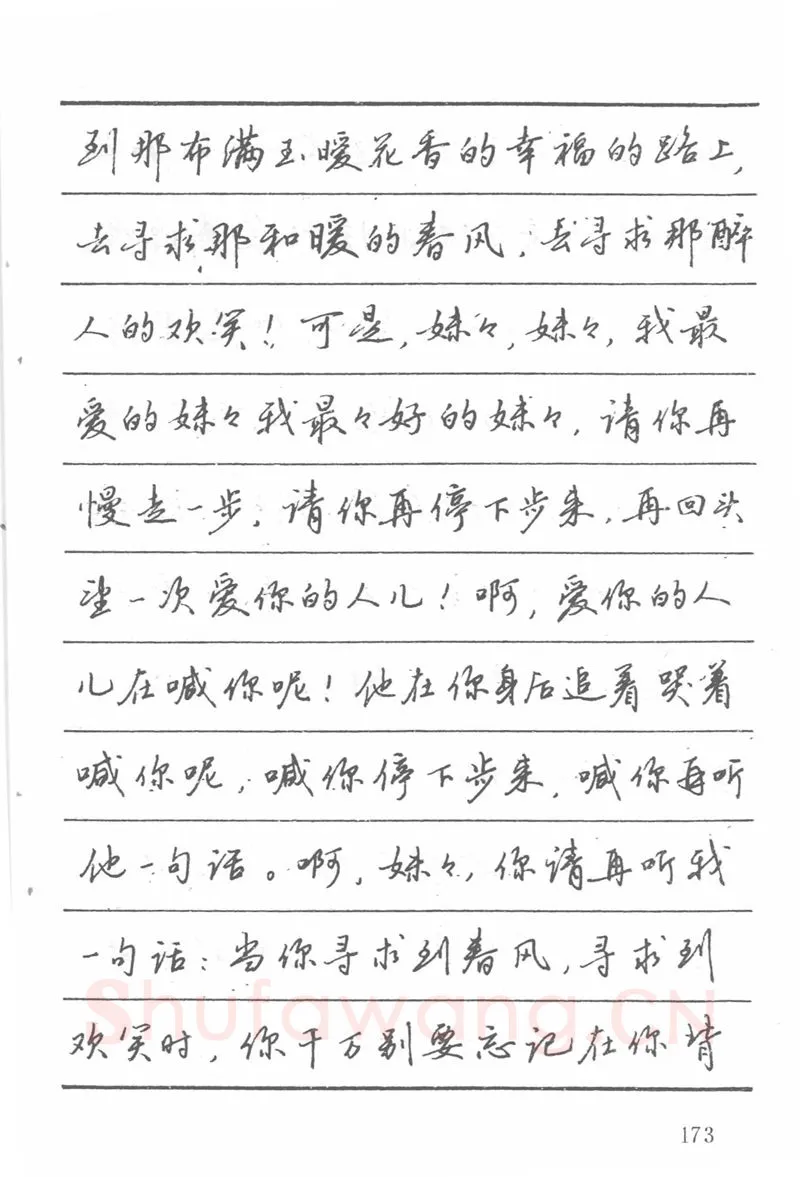 到那布满玉嗳花香的幸福的路上,
去寻求那和暖的春风,去寻求那醉
人的欢笑!可是,妹々,妹々,我最
爱的妹々我最々好的妹々,请你再
慢走一步,请你再停下步来,再回头
望一次爱你的人儿!啊,爱你的人
儿在喊你呢!他在你身后追着哭着
喊你呢,喊你停下步来,喊你再听
他一句话。啊,妹々,你请再听我
一句话:当你寻求到春风,寻求到
欢笑时,你千万别要忘记在你背
Shufawang.CN
173